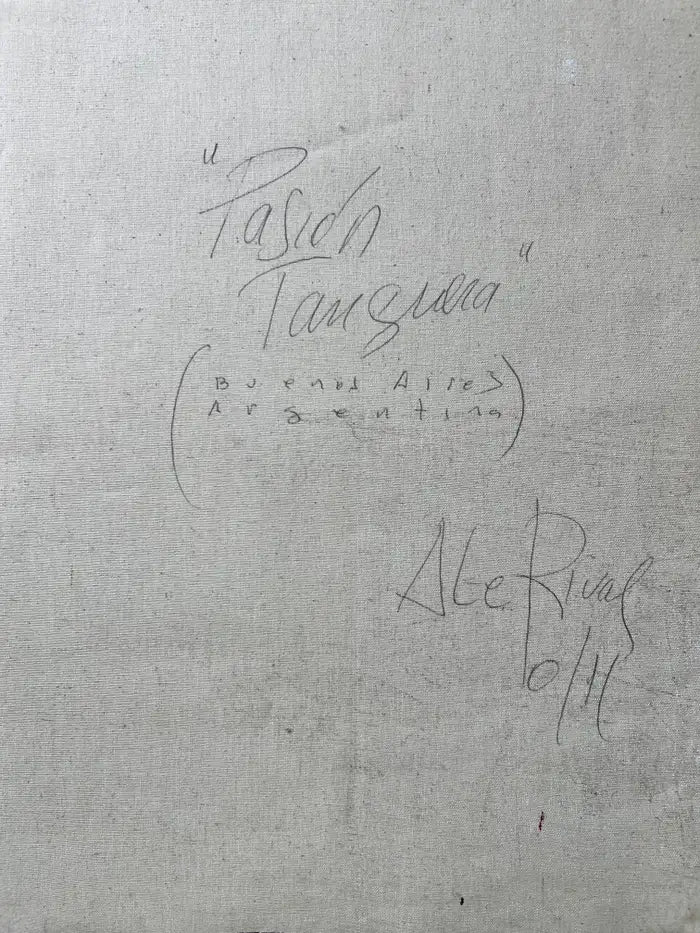 "Pasión
Tanguera"
(Buenos Aires
Argentina)
Ale Rivas
0/11